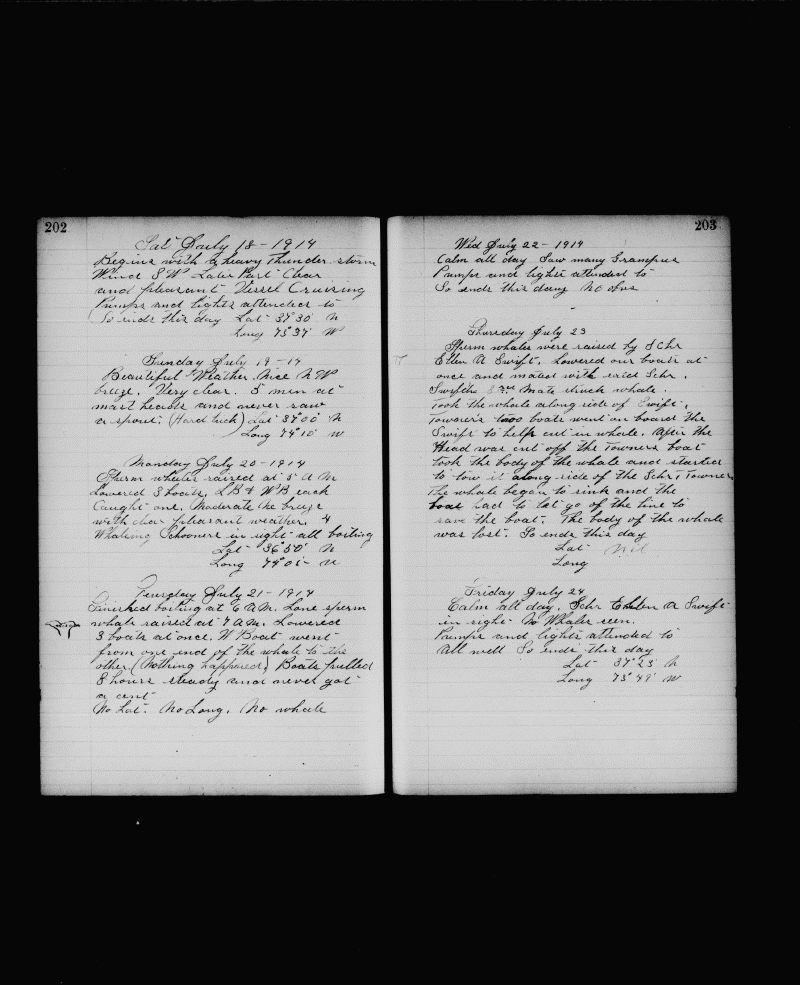 202
Sat July 18 - 1914
Begins with a heavy thunder storm
Wind SW Later Part Clear
and pleasant Vessel Cruising
Pumps and lights attended to
So ends this day Lat 37°30' N
Long 73°37' W
Sunday July 19 - 14
Beautiful Weather. Nice NW
breeze. Very clear. 5 men at
mast heads and never saw
a spout. (Hard luck) Lat 37°00' N
Long 74°10' W
Monday July 20 - 1914
Sperm whales raised at 5 AM
Lowered 3 boats, LB & WB each
Caught one, Moderate Ne breeze
with clear pleasant weather. 4
Whaling Schooners in sight all boiling
Lat 36°50' N
Long 74°05'
July 21 - 1914
Finished boiling at 6 AM. Lone sperm
whale raised at 7 AM. Lowered
3 boats at once. W Boat went
from one end of the whale to the
other (Nothing happened) Boats pulled
8 hours steady and never got
a cent
No Lat. No Long. No whale
203
Wed July 22 - 1914
Calm all day Saw many Grampus
Pumps and lights attended to
So ends this day No obs
Thursday July 23
Sperm whales were raised by Schr
Ellen A Swift. Lowered our boats at
once and mated with said Schr.
Swifts Mate struck whale.
Took the whale along side of Swift.
Towners two boats went on board the
Swift to help cut in whale. After the
Head was cut off the Towners boat
took the body of the whale and started
to tow it along side of the Schr Towner
The whale began to sink and the
boat had to let go of the line to
save the boat. The body of the whale
was lost. So ends this day
Lat Nil
Long
Friday July 24
Calm all day. Schr Ellen A Swift
in sight No Whales seen.
Pumps and lights attended to
All well So ends this day
Lat 37°23' N
Long 73°49' W